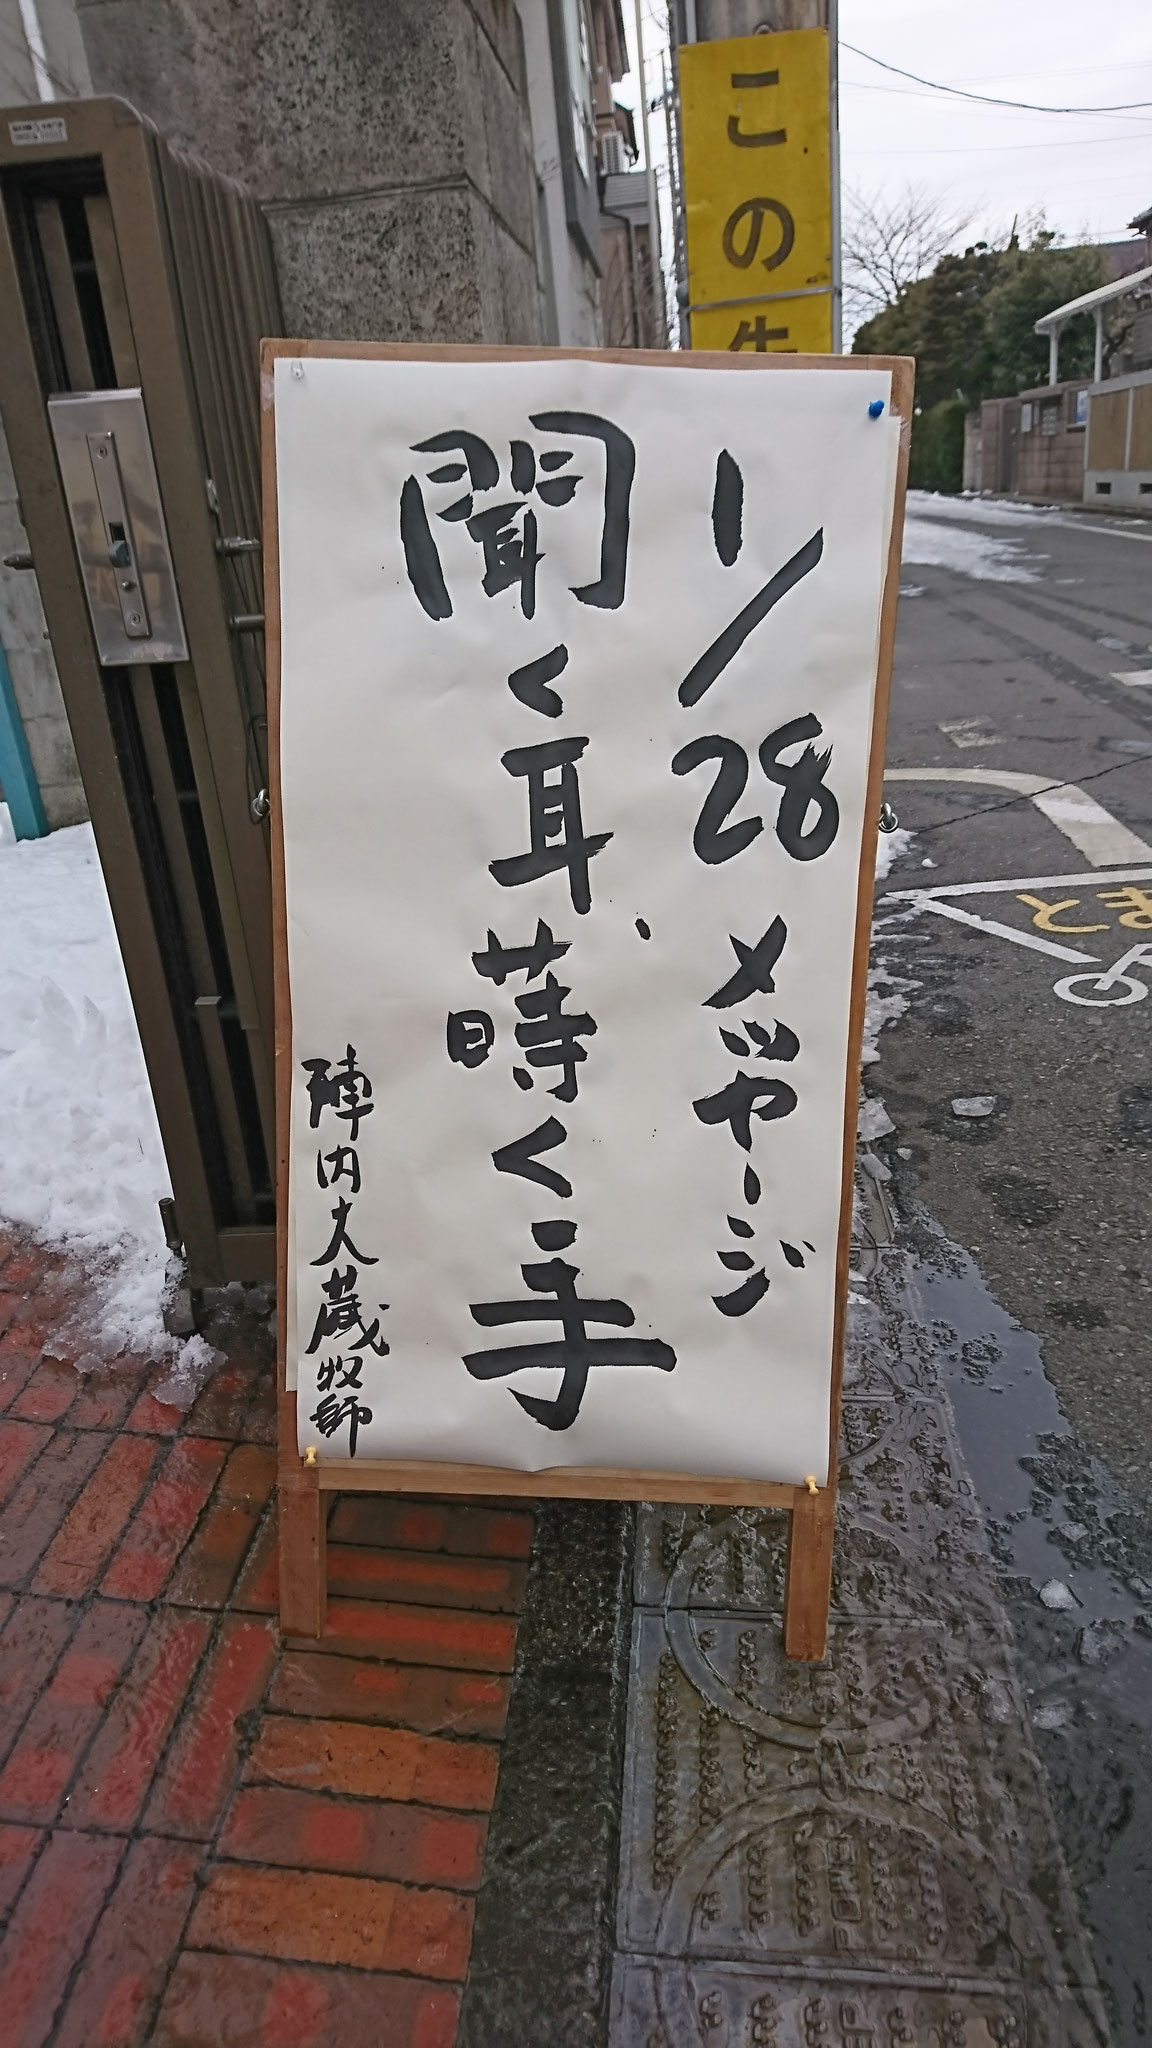 この
1/28 メッセージ
聞く耳、蒔く手
陣内大蔵牧師
とま